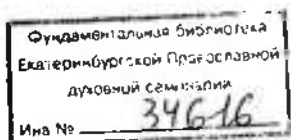 Фундаментальная библиотека
Екатеринбургской Православной
духовной семинарии
Инв № 34616